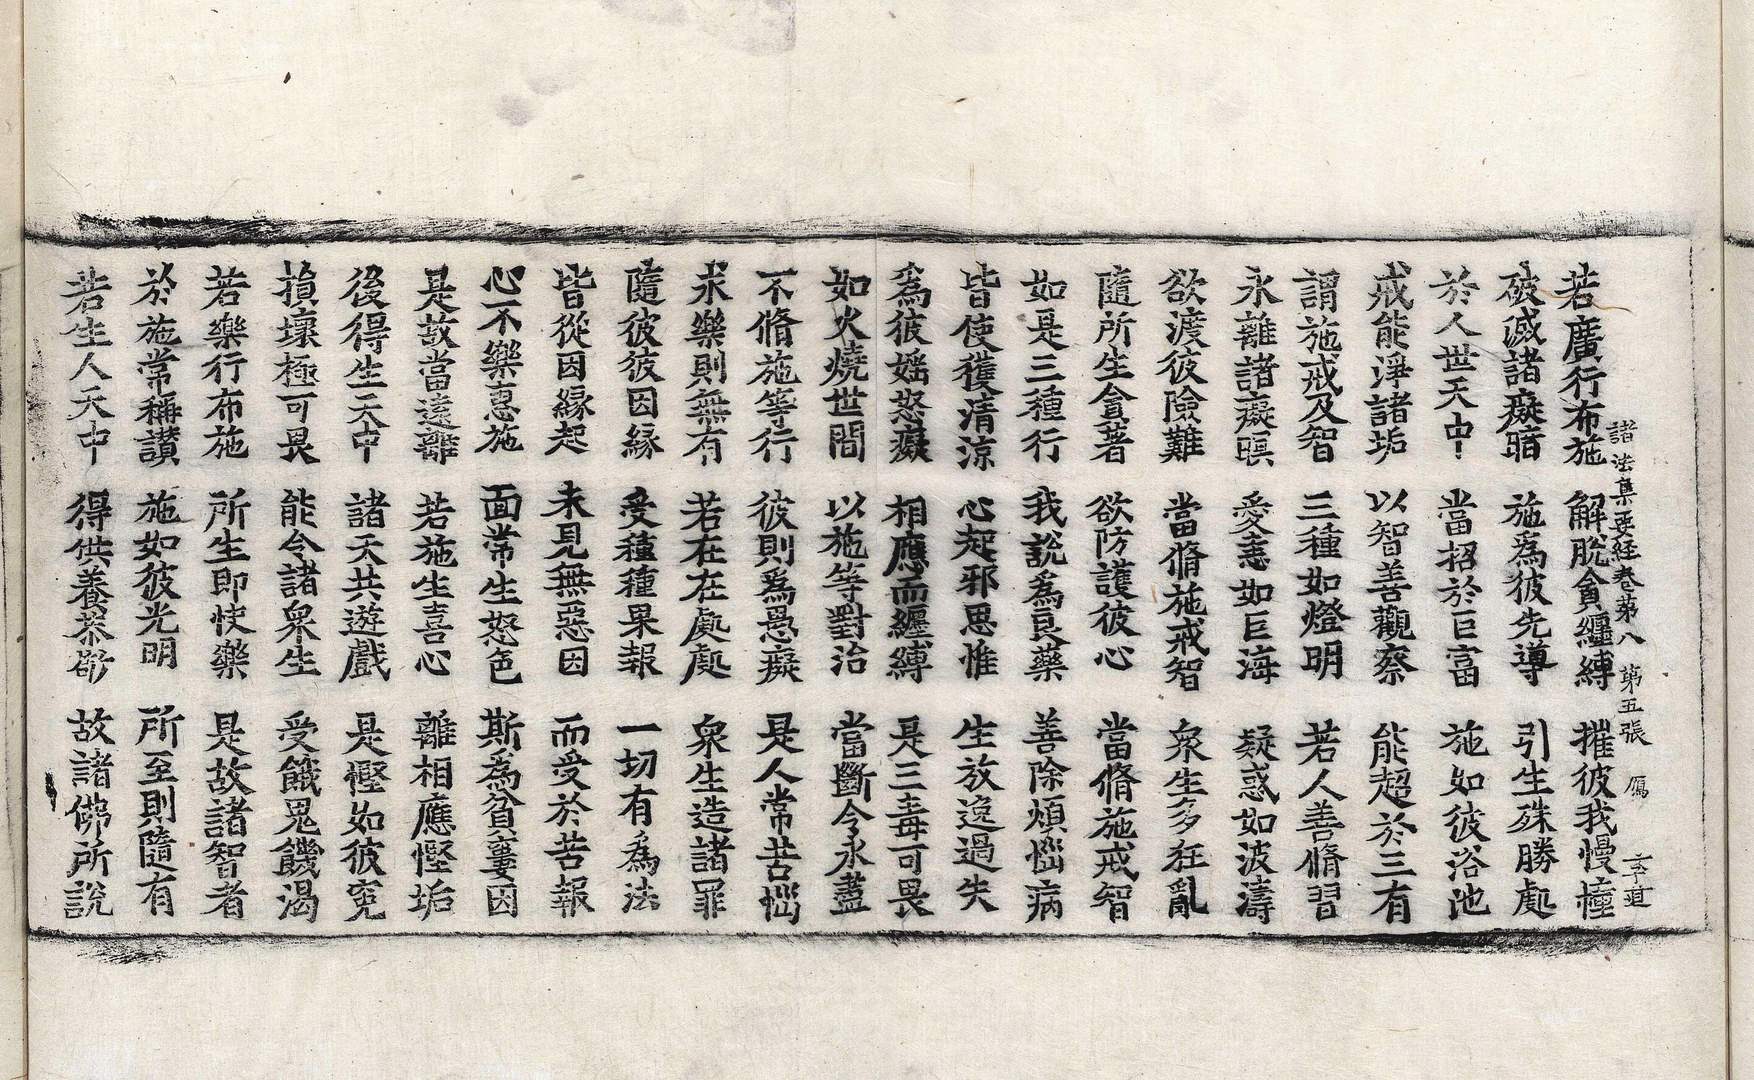 諸法集要經卷第八　第五張　鴈　李道
若廣行布施　解脫貪纏縛　摧彼我慢幢
破滅諸癡暗　施為彼先導　引生殊勝處
於人世天中　當招於巨富　施如彼浴池
戒能淨諸垢　以智善觀察　能超於三有
謂施戒及智　三種如燈明　若人善脩習
永離諸癡暝　愛恚如巨海　疑惑如波濤
欲渡彼險難　當脩施戒智　衆生多狂亂
隨所生貪著　欲防護彼心　當脩施戒智
如是三種行　我說為良藥　善除煩惱病
皆使獲清涼　心起邪思惟　生放逸過失
為彼婬怒癡　相應而纏縛　是三毒可畏
如火燒世間　以施等對治　當斷令永盡
不脩施等行　彼則為愚癡　是人常苦惱
求樂則無有　若在在處處　衆生造諸罪
隨彼彼因緣　受種種果報　一切有為法
皆從因緣起　未見無惡因　而受於苦報
心不樂惠施　面常生怒色　斯為貧窶因
是故當遠離　若施生喜心　離相應慳垢
後得生天中　諸天共遊戲　是慳如彼冤
損壞極可畏　能令諸衆生　受餓鬼饑渴
若樂行布施　所生即快樂　是故諸智者
於施常稱讃　施如彼光明　所至則隨有
若生人天中　得供養恭敬　故諸佛所說